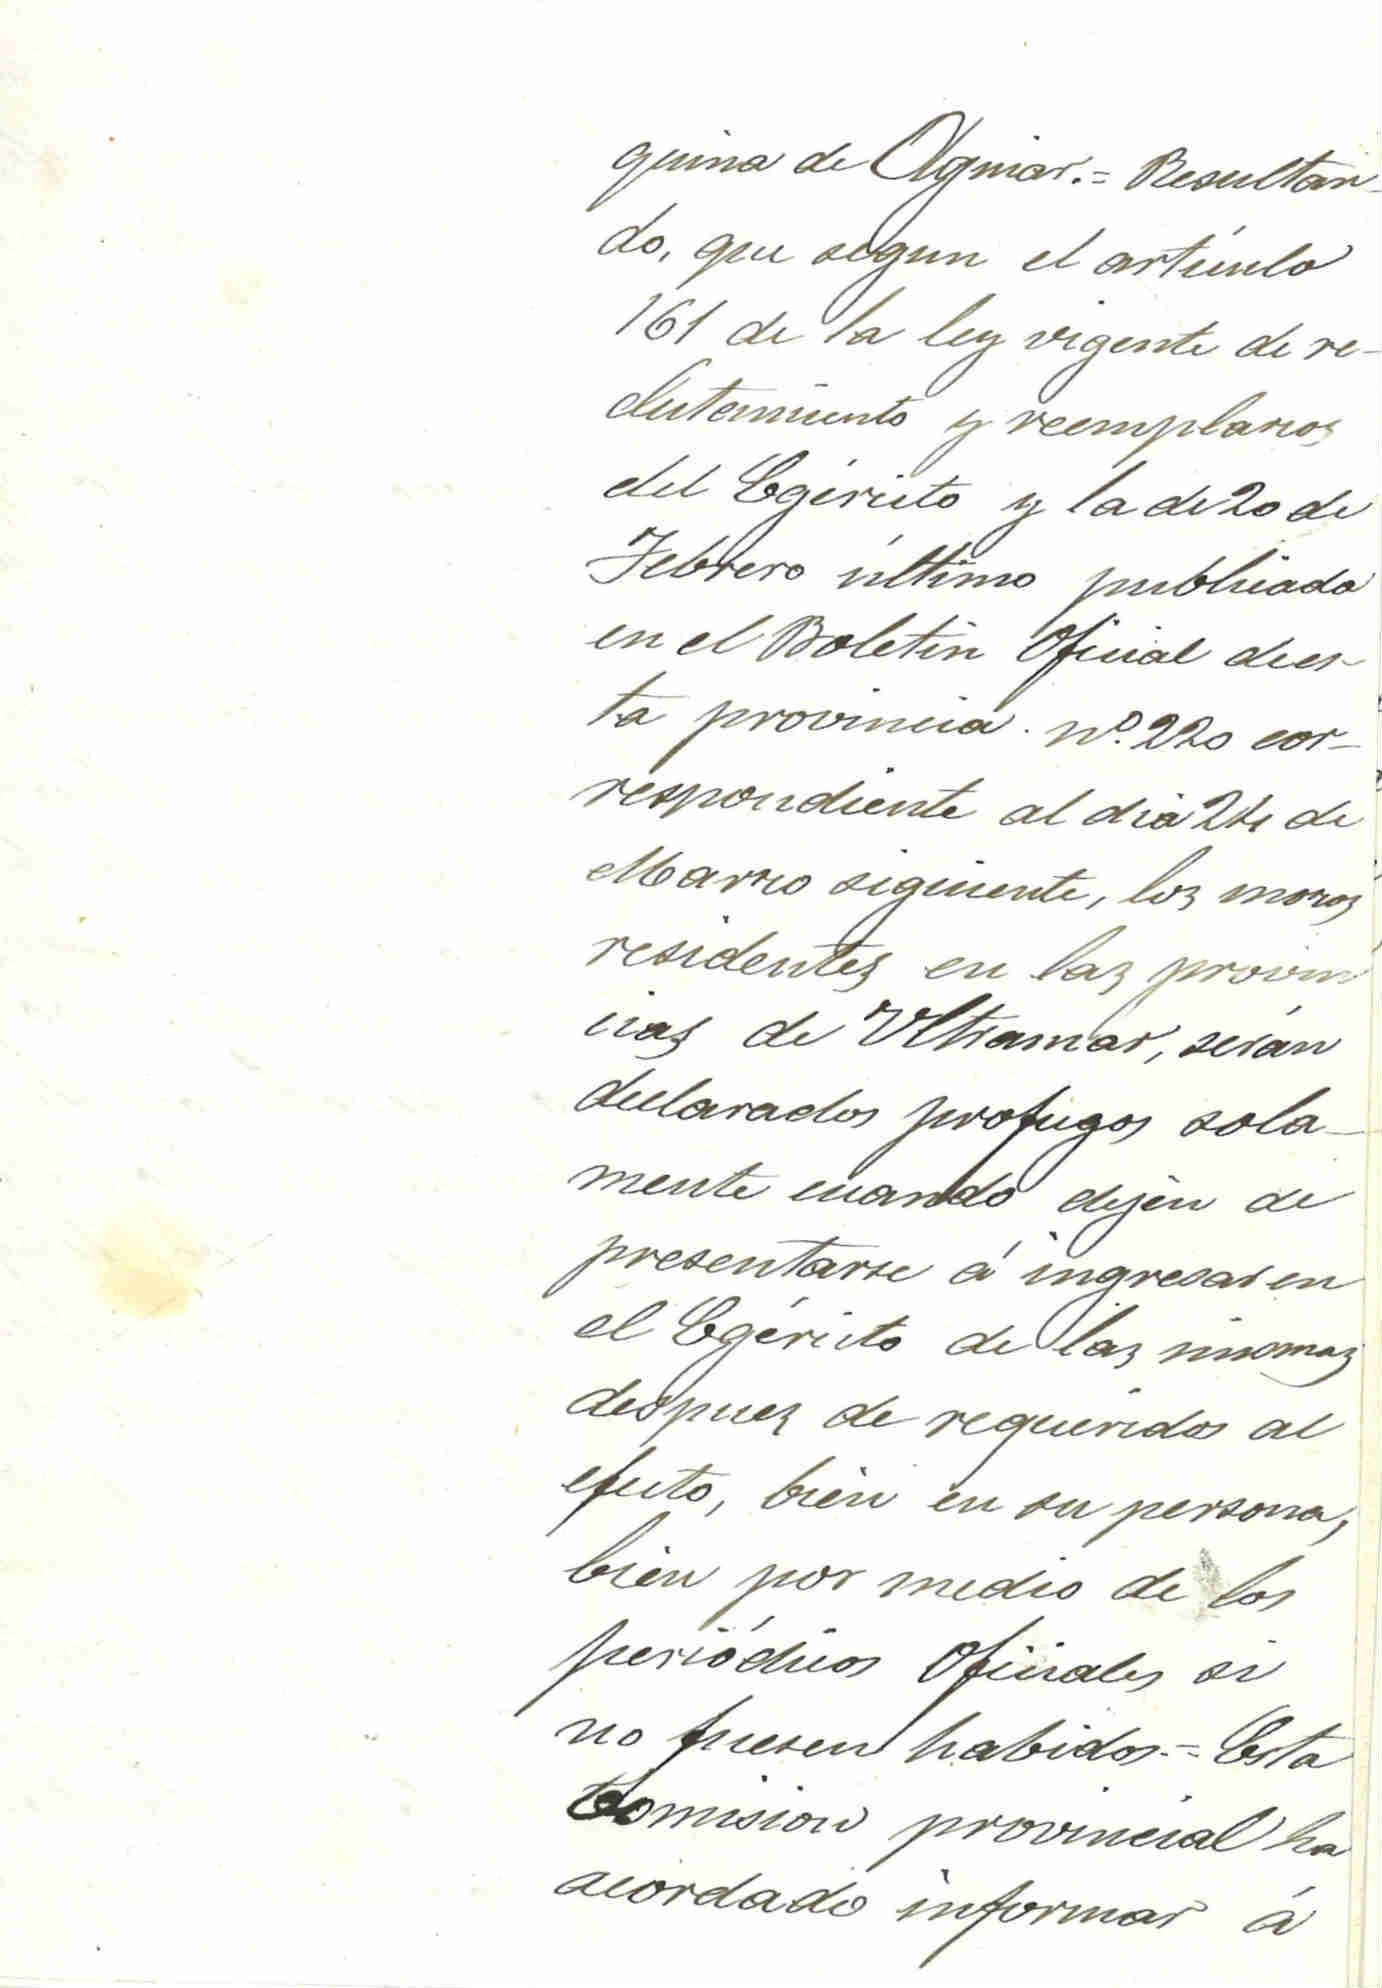 quina de Aguiar.= Resultan-
do, que segun el artículo
161 de la ley vigente de re-
clutamiento y reemplazos
del Egército y la de 20 de
Febrero último publicada
en el Boletin Oficial de es-
ta provincia nº. 220 cor-
respondiente al dia 24 de
Marzo siguiente, los mozos
residentes en las provin
cias de Ultramar, serán
declarados profugos sola-
mente cuando dejen de
presentarse á ingresar en
el Egército de las mismas
despues de requeridos al
efecto, bien en su persona,
bien por medio de los
periódicos Oficiales si
no fuesen habidos.= Esta
Comision provincial ha
acordado informar á